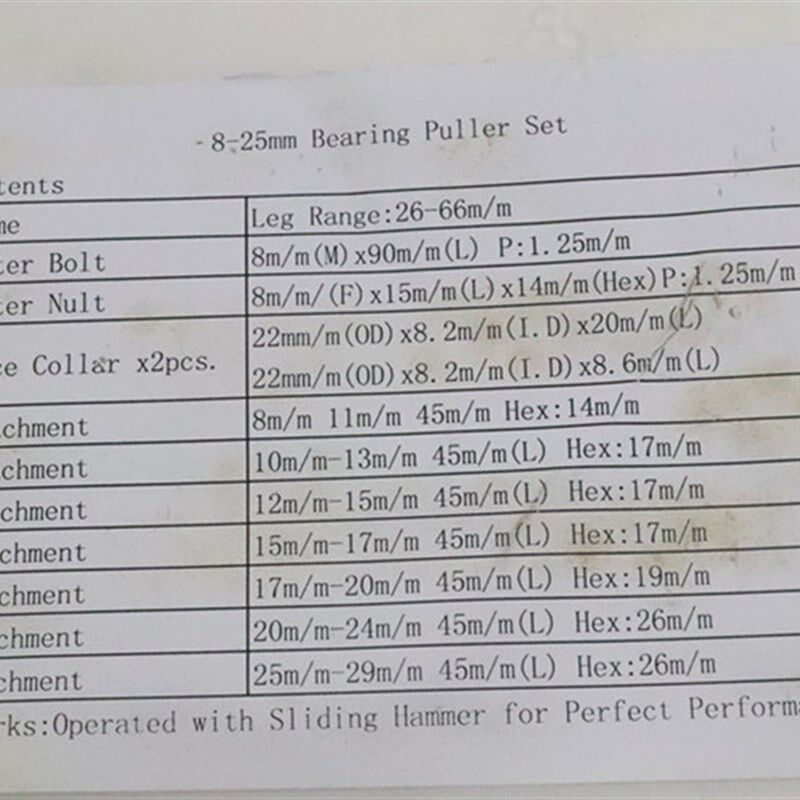 8-25mm Bearing Puller Set
tents
me
Leg Range:26-66m/m
ter Bolt
8m/m(M)x90m/m(L) P:1.25m/m
ter Nult
8m/m/(F)x15m/m(L)x14m/m(Hex)P:1.25m/m
ce Collar x2pcs.
22mm/m(OD)x8.2m/m(I.D)x20m/m(L)
22mm/m(OD)x8.2m/m(I.D)x8.6m/m(L)
chment
8m/m 11m/m 45m/m Hex:14m/m
chment
10m/m-13m/m 45m/m(L) Hex:17m/m
chment
12m/m-15m/m 45m/m(L) Hex:17m/m
chment
15m/m-17m/m 45m/m(L) Hex:17m/m
chment
17m/m-20m/m 45m/m(L) Hex:19m/m
chment
20m/m-24m/m 45m/m(L) Hex:26m/m
chment
25m/m-29m/m 45m/m(L) Hex:26m/m
rks:Operated with Sliding Hammer for Perfect Performa